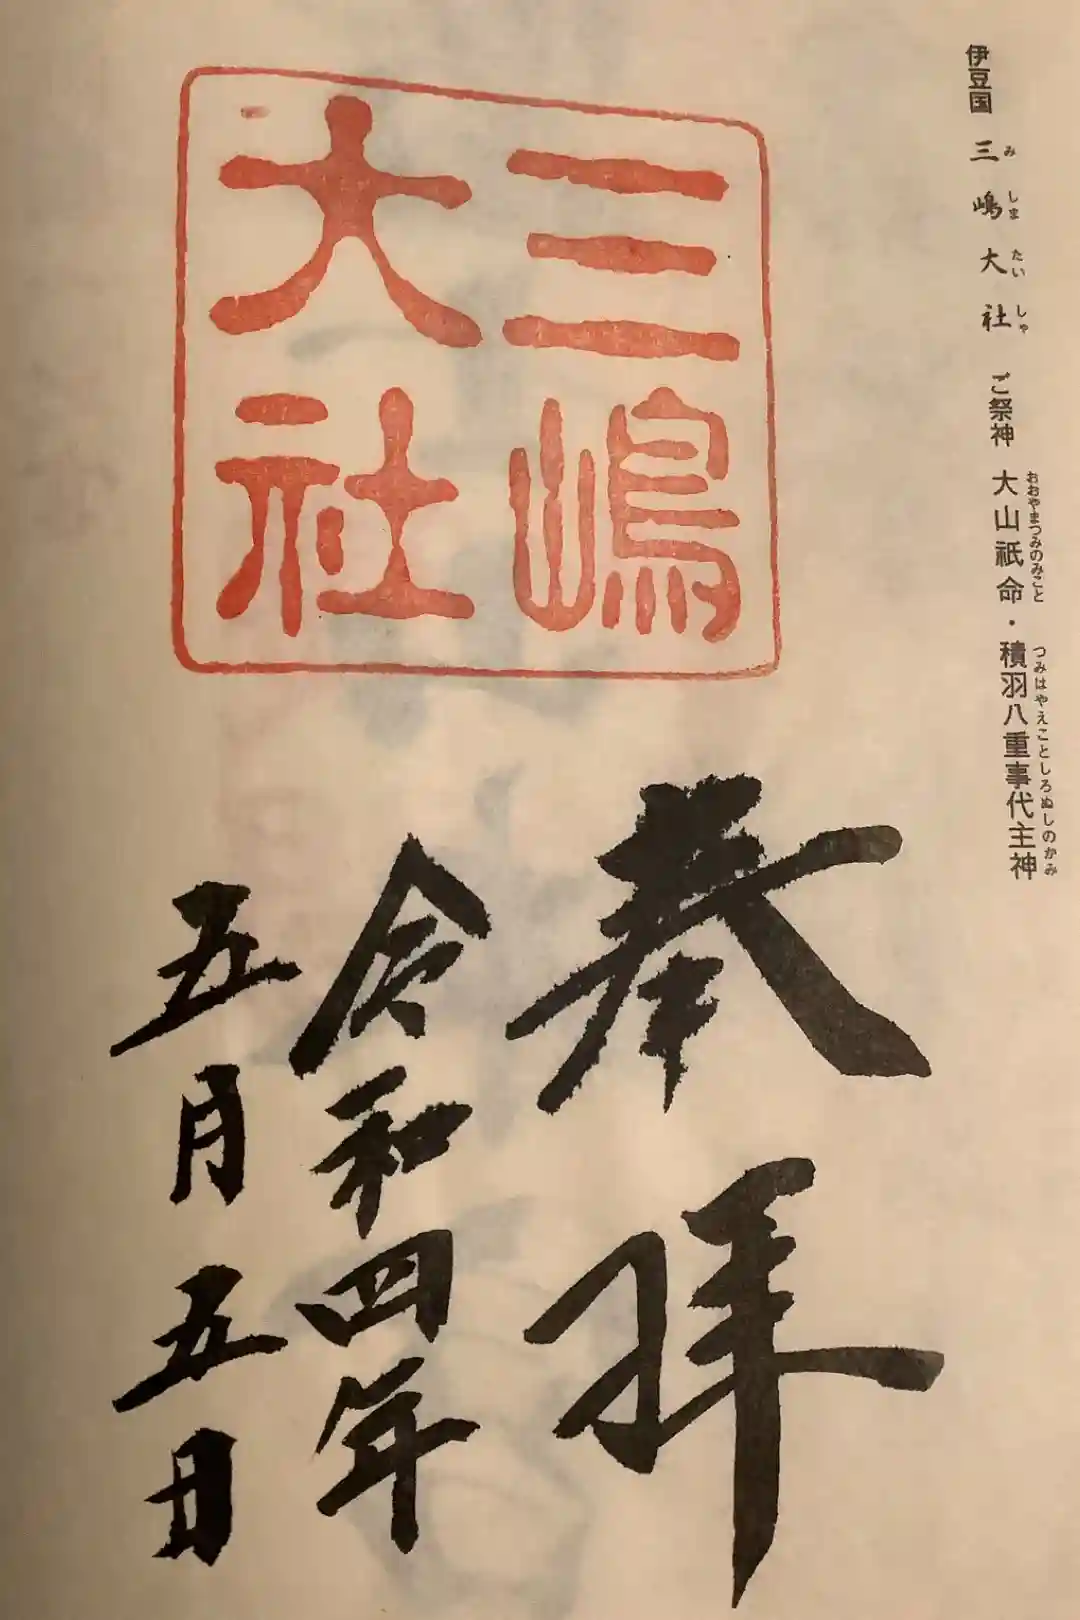 伊豆国 三嶋大社 ご祭神 大山祇命・積羽八重事代主神
み しま たい しゃ おおやまつみのみこと つみはやえことしろぬしのかみ
三嶋
大社
奉拝
令和四年
五月五日